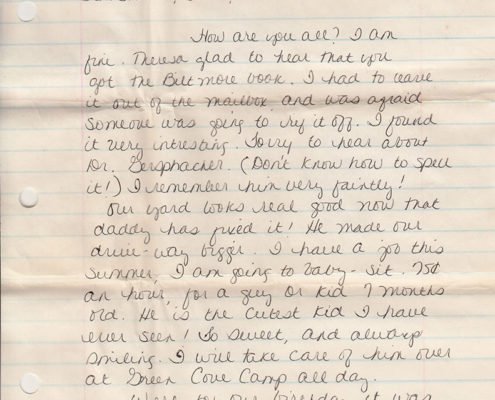 How are you all? I am
fine. Theresa glad to hear that you
got the Biltmore book. I had to leave
it out of the mailbox, and was afraid
someone was going to rip it off. I found
it very intresting. Sorry to hear about
Dr. Gersphacher. (Don't know how to spell
it!) I remember him very faintly!
Our yard looks real good now that
daddy has fixed it! He made our
drive-way bigger. I have a job this
summer, I am going to baby-sit. 75¢
an hour, for a guy or kid 7 months
old. He is the cutest kid I have
ever seen! So sweet, and always
smiling. I will take care of him over
at Green Cove Camp all day.
it was